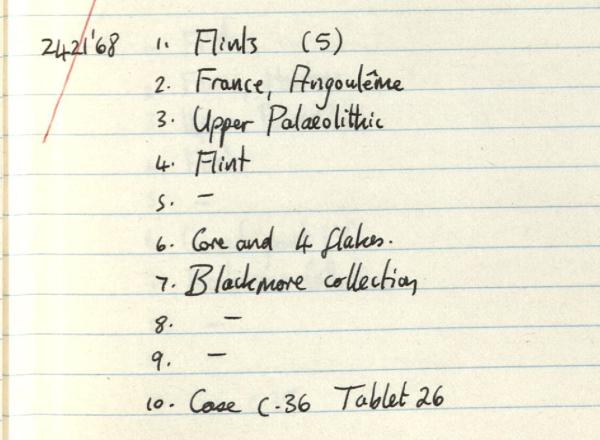 2421'68 1. Flints (5)
2. France, Angoulême
3. Upper Palaeolithic
4. Flint
5. –
6. Core and 4 flakes.
7. Blackmore collection
8. –
9. –
10. Case C.36 Tablet 26